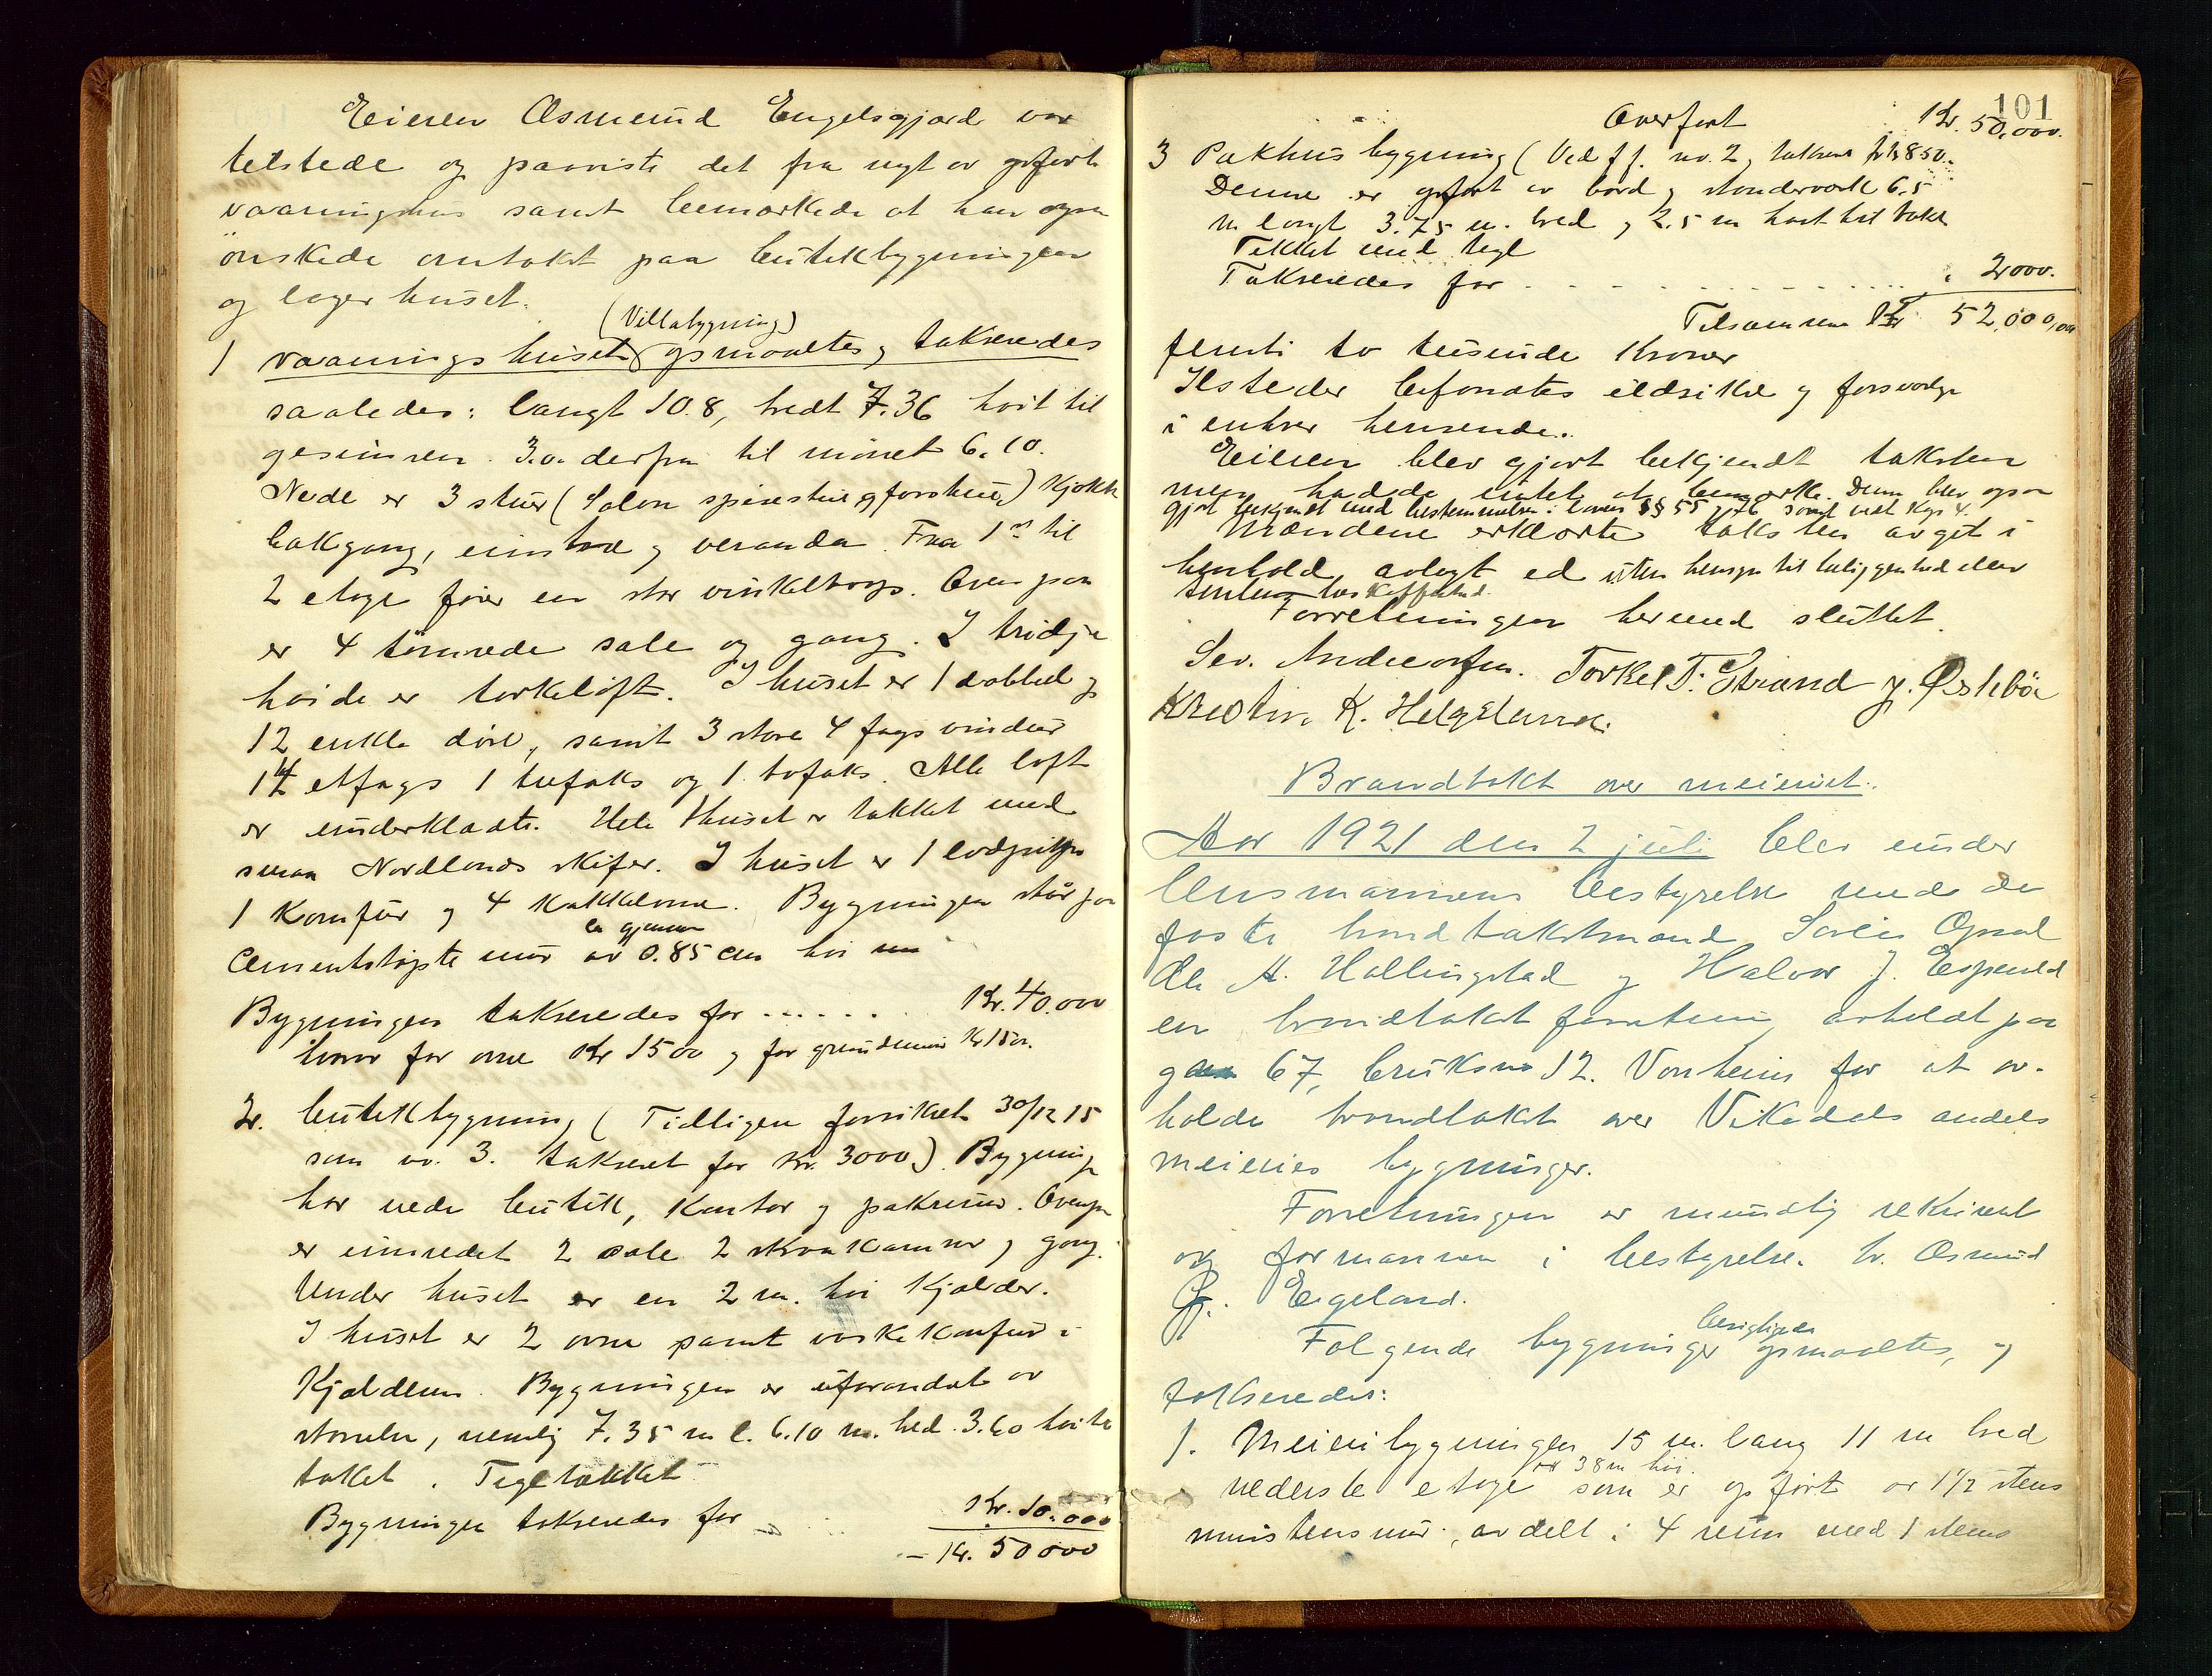 Eieren Asmund Engelsgjerd var
tilstede og paaviste det fra nyt av opførte
vaaningshus samt bemærkede at han ogsaa
ønskede omtakst paa butikbygningen
og lagerhuset.
(Villabygning)
1 vaaningshuset opmaaltes og takseredes
saaledes: langt 10.8, bredt 7.36 høit til
gesimsen 3.0. derfra til mønet 6.10.
Nede er 3 stuer (Salon spisestue og forstue) Kjøkken
bakgang, og veranda. Fra 1ste til
2 etage fører en stor vinkeltrap. Ovenpaa
er 4 tømrede sale og gang. I tridje
høide er tørkeloft. I huset er 1 dobbel og
12 enkle døre, samt 3 store 4 fags vinduer
14 etfags 1 trefaks og 1 tofaks. Alle loft
er underklædte. Hele huset er tækket med
smaa Nordlands skifer. I huset er 1
1 Komfur og 4 Kakkelovne. Bygningen står paa
en gjennem
Cementstøpte mur av 0.85 cm høi
Bygningen takseredes for ...... Kr. 40.000
hvorav for ovne Kr 1500 og for grundmur Kr 1500.
2. butikbygning (Tidligere forsikret 30/12 15
som no. 3. takseret for Kr. 3000) Bygning
har nede butik, Kontor og pakrum. Ovenpaa
er innredet 2 sale 2 skraakammer og gang.
Under huset er en 2 m. høi Kjælder.
I huset er 2 ovne samt vaskekomfur i
Kjælderen. Bygningen er uforandret av
størrelse, nemlig 7.35 m l. 6.10 m. bred 3.60 høi til
taket. Tegltækket
Bygningen takseredes for Kr. 10.000
Kr. 50000
101
Overført Kr. 50,000.
3 Pakhusbygning (Ved ff. no. 2, takseret for Kr 850.
Denne er opført av bord og stenderværk 6.5
m langt 3.75 m. bred og 2.5 m høit til taket
Tekket med tegl
Takseredes for 2000.
Tilsammen Kr 52,000,00
femti to tusinde Kroner
Ilsteder befandtes ildsikre og forsvarlige
i enhver henseende.
Eieren blev gjort bekjendt taksten
men hadde intet at bemærke. Denne blev ogsaa
gjort bekjendt med bestemmelsen i lovens §§ 55 og 76 samt
Mændene erklærte taksten avgit i
henhold avlagt ed uten hensyn til beliggenhed eller
beskaffenhed.
Forretningen hermed sluttet.
Sev. Andreassen. Torkel T. Strand J. Østebø
Kristen K. Helgeland.
Brandtakst over meieriet.
Aar 1921 den 2 juli blev under
lensmannens bestyrelse med de
faste brandtakstmænd Søren Opsal
A. Hallingstad og Halvor J. Espeland
en brandtakst forretning avholdt paa
67, bruksno 12. Vonheim for at av-
holde brandtakst over Vikedals andels
meieries bygninger.
Forretningen er mundtlig rekvireret
av formannen i bestyrelsen hr. Asmund
G. Eigeland.
besigtigedes
Følgende bygninger opmaaltes, og
takseredes:
1. Meieribygningen 15 m. lang 11 m bred
er 3 8 m høi.
nederste etage som er opført av 1 1/2 stens
murstensmur, avdelt i 4 rum med 1 stens